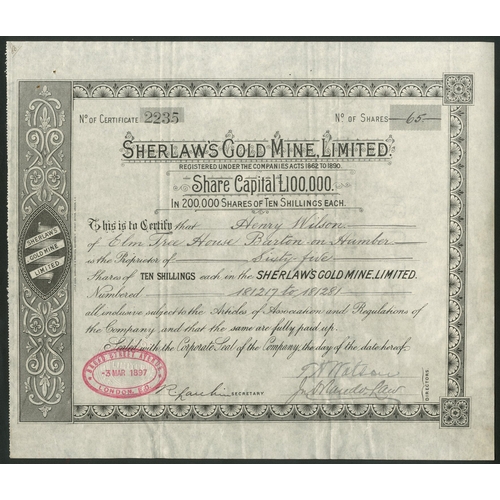 No OF CERTIFICATE 2235 No OF SHARES -65.-
SHERLAW'S GOLD MINE, LIMITED.
REGISTERED UNDER THE COMPANIES ACTS 1862 TO 1890.
Share Capital £100,000.
IN 200,000 SHARES OF TEN SHILLINGS EACH.
This is to Certify that Henry Wilson
of Elm Tree House Barton on Humber
is the Proprietor of Sixty five
Shares of TEN SHILLINGS each in the SHERLAW'S GOLD MINE, LIMITED.
Numbered 181217 to 181281
all inclusive subject to the Articles of Association and Regulations of
the Company and that the same are fully paid up.
Sealed with the Corporate Seal of the Company, the day of the date hereof.
SHERLAW'S
GOLD MINE
LIMITED
BROAD STREET AVENUE
-3 MAR 1897
LONDON, E.C.
SECRETARY
DIRECTORS